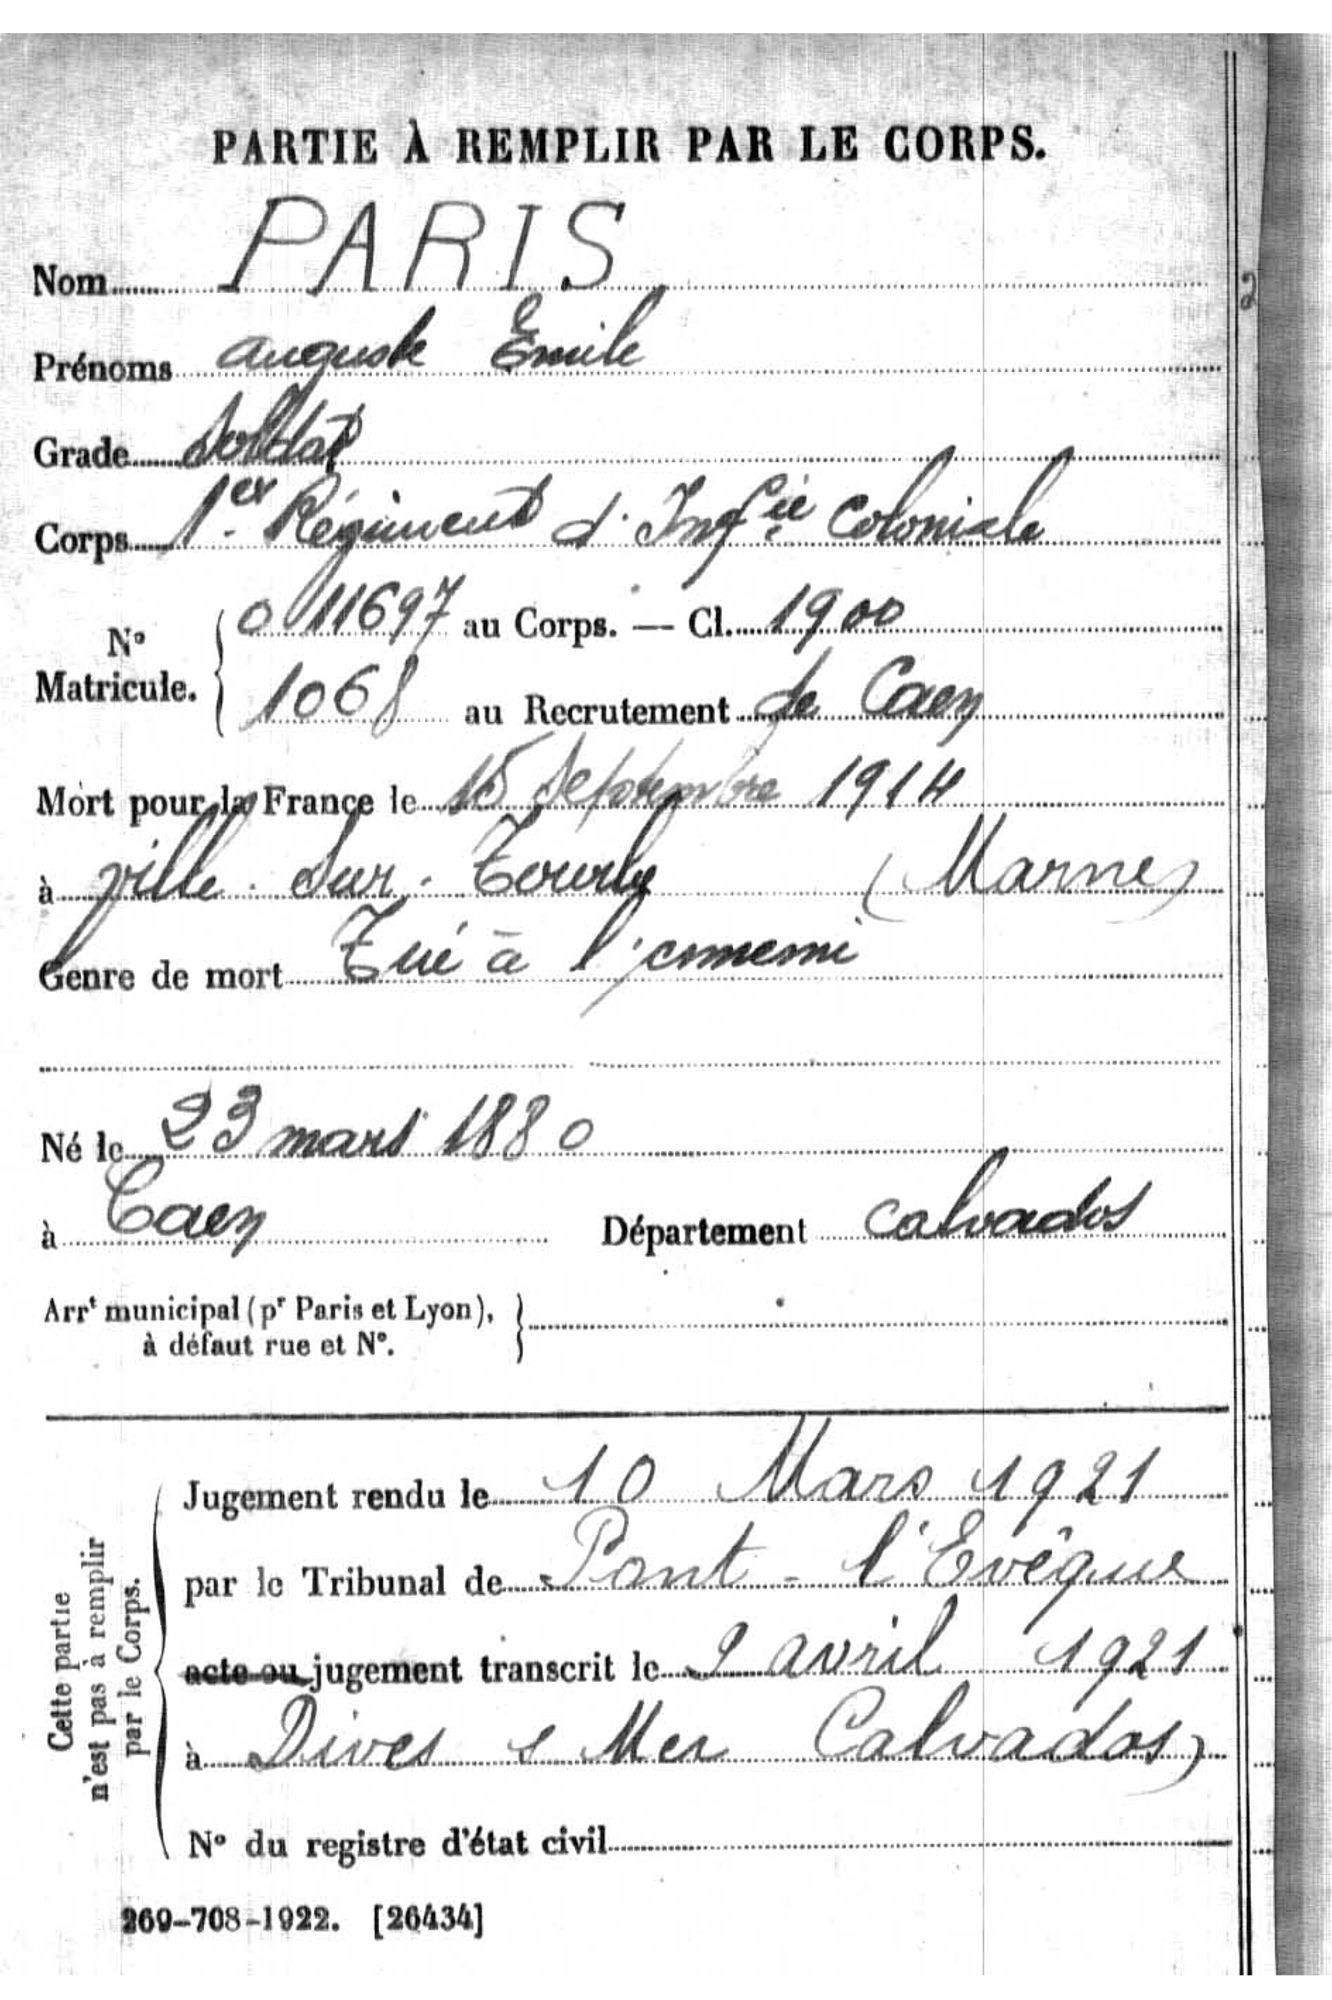 PARTIE À REMPLIR PAR LE CORPS.
Nom PARIS
Prénoms Auguste Emile
Grade Soldat
Corps 1er Régiment d'Infie Coloniale
N° Matricule. { 0 11697 au Corps. — Cl. 1900
1068 au Recrutement de Caen
Mort pour la France le 15 Septembre 1914
à ville sur Tourbe (Marne)
Genre de mort Tué à l'ennemi
Né le 23 mars 1880
à Caen Département Calvados
Arrt municipal (pr Paris et Lyon), }
à défaut rue et N°.
Cette partie
n'est pas à remplir
par le Corps.
Jugement rendu le 10 Mars 1921
par le Tribunal de Pont-l'Evêque
acte ou jugement transcrit le 2 avril 1921
à Dives s Mer Calvados)
N° du registre d'état civil
269-708-1922. [26434]